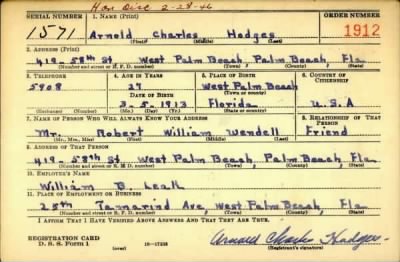 Hon Disc 2-28-46
SERIAL NUMBER 1. NAME (Print) ORDER NUMBER
1571 Arnold Charles Hodges 1912
(First) (Middle) (Last)
2. ADDRESS (Print)
419- 58th St West Palm Beach, Palm Beach, Fla
(Number and street or R. F. D. number) (Town) (County) (State)
3. TELEPHONE 4. AGE IN YEARS 5. PLACE OF BIRTH 6. COUNTRY OF CITIZENSHIP
5908 27 West Palm Beach
DATE OF BIRTH (Town or county)
3-5-1913 Florida U.S.A
(Exchange) (Number) (Mo.) (Day) (Yr.) (State or country)
7. NAME OF PERSON WHO WILL ALWAYS KNOW YOUR ADDRESS 8. RELATIONSHIP OF THAT PERSON
Mr. Robert William Wendell Friend
(Mr., Mrs., Miss) (First) (Middle) (Last)
9. ADDRESS OF THAT PERSON
419- 58th St, West Palm Beach, Palm Beach, Fla
(Number and street or R. F. D. number) (Town) (County) (State)
10. EMPLOYER'S NAME
William B. Leak
11. PLACE OF EMPLOYMENT OR BUSINESS
25th Tamarind Ave, West Palm Beach, Fla
(Number and street or R. F. D. number) (Town) (County) (State)
I AFFIRM THAT I HAVE VERIFIED ABOVE ANSWERS AND THAT THEY ARE TRUE.
REGISTRATION CARD
D. S. S. Form 1 (over) 16-17105 Arnold Charles Hodges
(Registrant's signature)